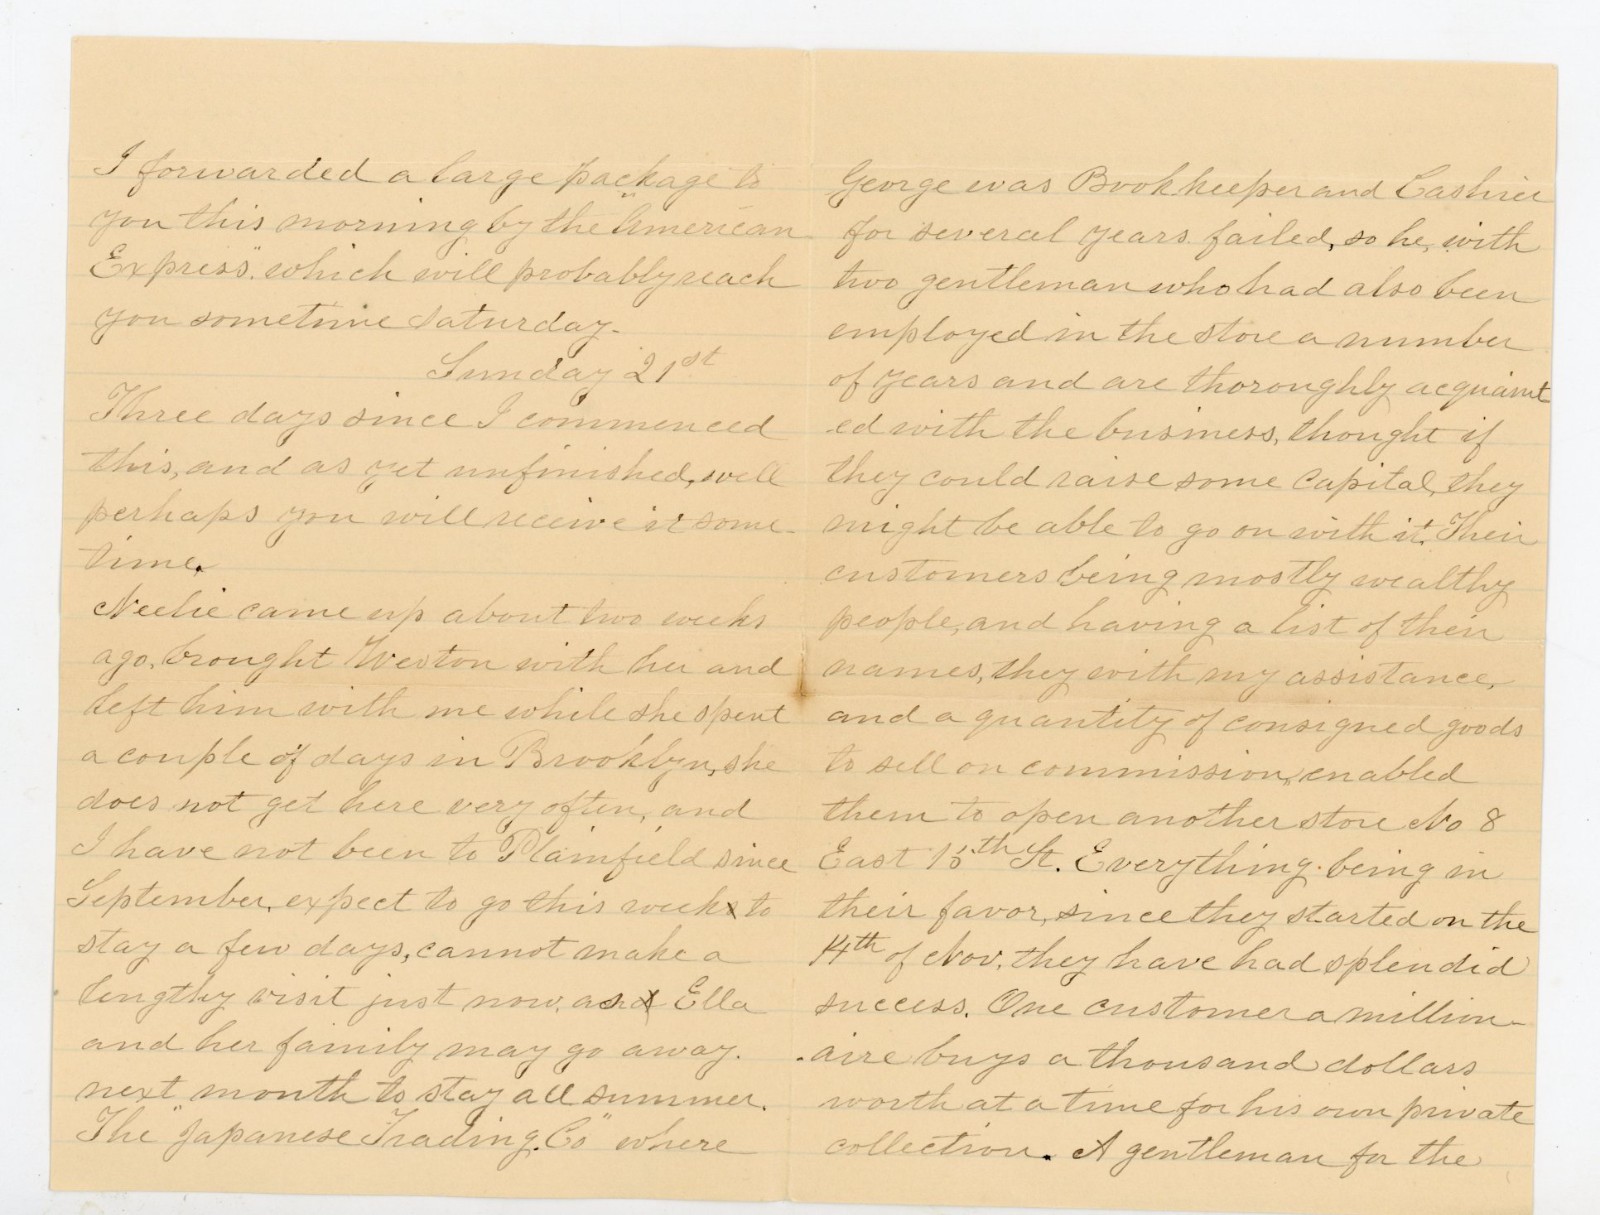 I forwarded a large package to
you this morning by the "American
Express", which will probably reach
you sometime Saturday.
Sunday 21st
Three days since I commenced
this, and as yet unfinished, well
perhaps you will receive it some-
time.
Neelie came up about two weeks
ago, brought Weston with her and
left him with me while she spent
a couple of days in Brooklyn, she
does not get here very often, and
I have not been to Plainfield since
September, expect to go this week to
stay a few days, cannot make a
lengthy visit just now, as Ella
and her family may go away.
next month to stay all summer.
The "Japanese Trading Co" where
George was Bookkeeper and Cashier
for several years failed, so he, with
two gentleman who had also been
employed in the store a number
of years and are thoroughly acquaint
ed with the business, thought if
they could raise some capital, they
might be able to go on with it. Their
customers being mostly wealthy
people, and having a list of their
names, they with my assistance,
and a quantity of consigned goods
to sell on commission, enabled
them to open another store No 8
East 15th St. Everything being in
their favor, since they started on the
14th of Nov. they have had splendid
success. One customer a million-
aire buys a thousand dollars
worth at a time for his own private
collection. A gentleman for the